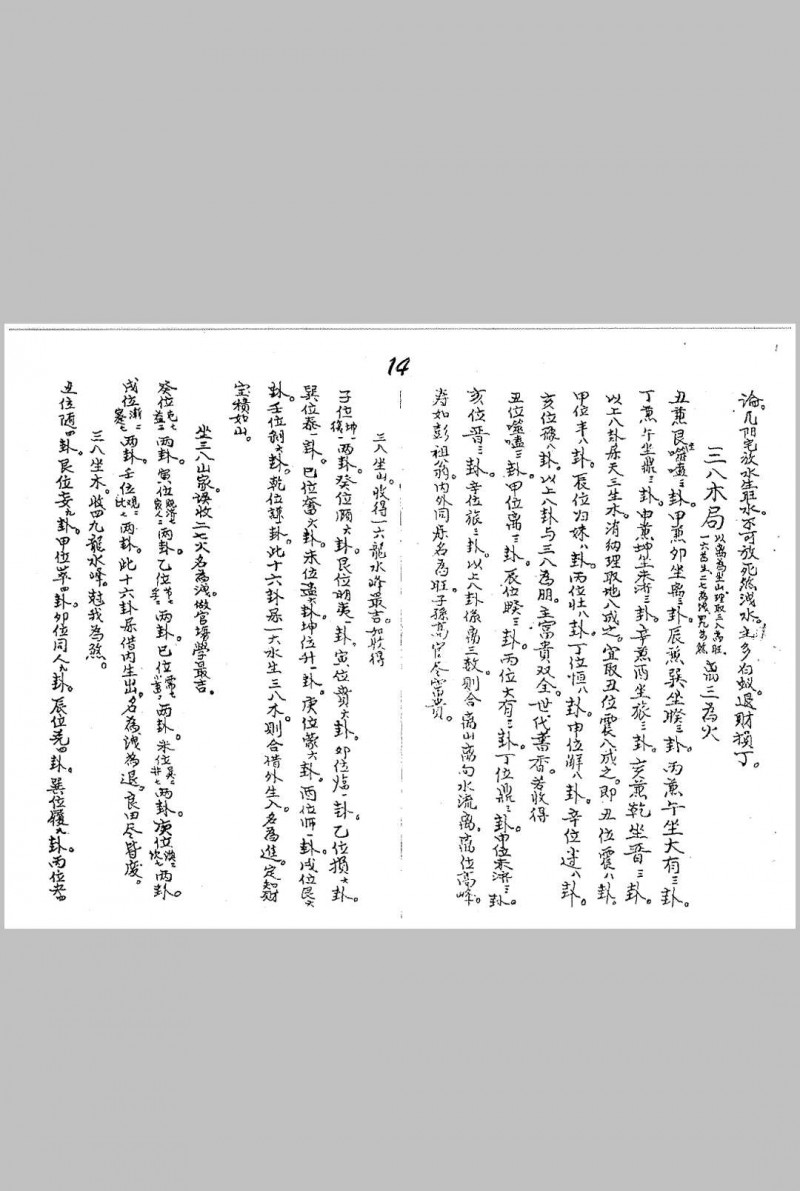 論。凡阴宅放水生旺水。不可放死煞洩水。主多白蚁退财損丁。
三八木局 以离為坐山。理取三八為旺。一六為生。二七為洩。九為煞 离三為火
丑兼艮坐噬嗑三卦。甲兼卯坐离三卦。辰兼巽坐睽三卦。丙兼午坐大有三卦。
丁兼午坐鼎三卦。申兼坤坐未济三卦。辛兼酉坐旅三卦。亥兼乾坐晋三卦。
以上八卦属天三生木。消纳理取地八成之。宜取丑位震八成之。即丑位震八卦。
甲位丰八卦。辰位归妹八卦。丙位壮八卦。丁位恒八卦。申位解八卦。辛位小过八卦。
亥位豫八卦。以上八卦与三八為朋。主富貴双全。世代書香。若收得
丑位噬嗑三卦。甲位离三卦。辰位睽三卦。丙位大有三卦。丁位鼎三卦。申位未济三卦。
亥位晋三卦。辛位旅三卦。以上八卦係离三数。則合离山离向水流离。离位高峰。
寿如彭祖翁。内外同属名為旺。子孫高官尽富貴。
14
三八坐山。收得一六龍水峰最吉。如收得
子位坤一復一两卦。癸位颐六卦。艮位明夷一卦。寅位賁六卦。卯位临一卦。乙位損六卦。
巽位泰一卦。巳位畜六卦。未位蛊六卦。坤位升一卦。庚位蒙六卦。酉位师一卦。戌位艮六
卦。壬位剝六卦。乾位謙卦。此十六卦属一六水生三八木。則合借外生入名為進。定知财
宝積如山。
坐三八山家。误收二七火名為洩。做官場學最吉。
癸位屯七益二两卦。寅位既济七家人二两卦。乙位节七孚二两卦。巳位需七小畜二两卦。未位巽二井七两卦。庚位渙二坎七两卦。
戌位漸二蹇七两卦。壬位观二比七两卦。此十六卦属借内生出。名為洩為退。良田尽皆废。
三八坐木。收四九龍水峰。尅我為煞。
丑位随四卦。艮位妄九卦。甲位革四卦。卯位同人九卦。辰位兑四卦。巽位履九卦。丙位夬四